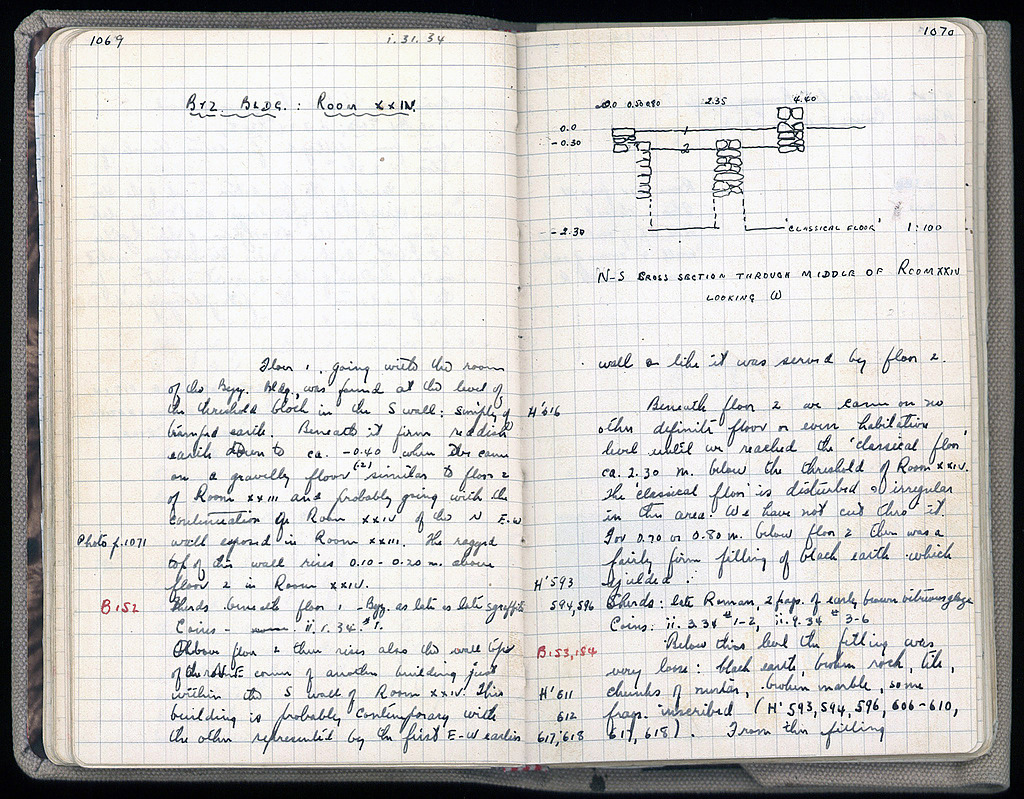 1069
i.31.34
Byz. Bldg.: Room XXIV.
Floor 1, going with the room
of the Byz. Bldg., was found at the level of
the threshold block in the S wall: simply of
tramped earth. Beneath it firm reddish
earth down to ca. -0.40 when we came
on a gravelly floor (2) similar to floor 2
of Room XXIII and probably going with the
continuation of Room XXIV of the N E-W
Photo p.1071 wall exposed in Room XXIII. The ragged
top of this wall rises 0.10-0.20 m. above
floor 2 in Room XXIV.
B152 Sherds beneath floor 1 - Byz. as late as late sgraffito
Coins - ii.1.34 #1.
Above floor 2 there rises also the wall top
of the E corner of another building just
within the S wall of Room XXIV. This
building is probably contemporary with
the other represented by the first E-W earlier
1070
0.0 0.50 0.80 2.35 4.40
0.0 1
-0.30 2
-2.30 'CLASSICAL FLOOR' 1:100
N-S CROSS SECTION THROUGH MIDDLE OF ROOM XXIV
LOOKING W
wall or like it was served by floor 2.
H'616 Beneath floor 2 we came on no
other definite floor or even habitation
level until we reached the 'classical floor'
ca. 2.30 m. below the threshold of Room XXIV.
The 'classical floor' is disturbed & irregular
in this area. We have not cut thro it.
For 0.70 or 0.80 m. below floor 2 there was a
fairly firm filling of black earth which
H'593 yielded:
594,596 Sherds: late Roman, 2 frags. of early brown vitreous glaze
Coins: ii.3.34 #1-2, ii.9.34 #3-6
B153,154 Below this level the filling was
very loose: black earth, broken rock, tile,
H'611 chunks of mortar, broken marble, some
612 frags. inscribed (H'593, 594, 596, 606-610,
617,618 617, 618). From this filling